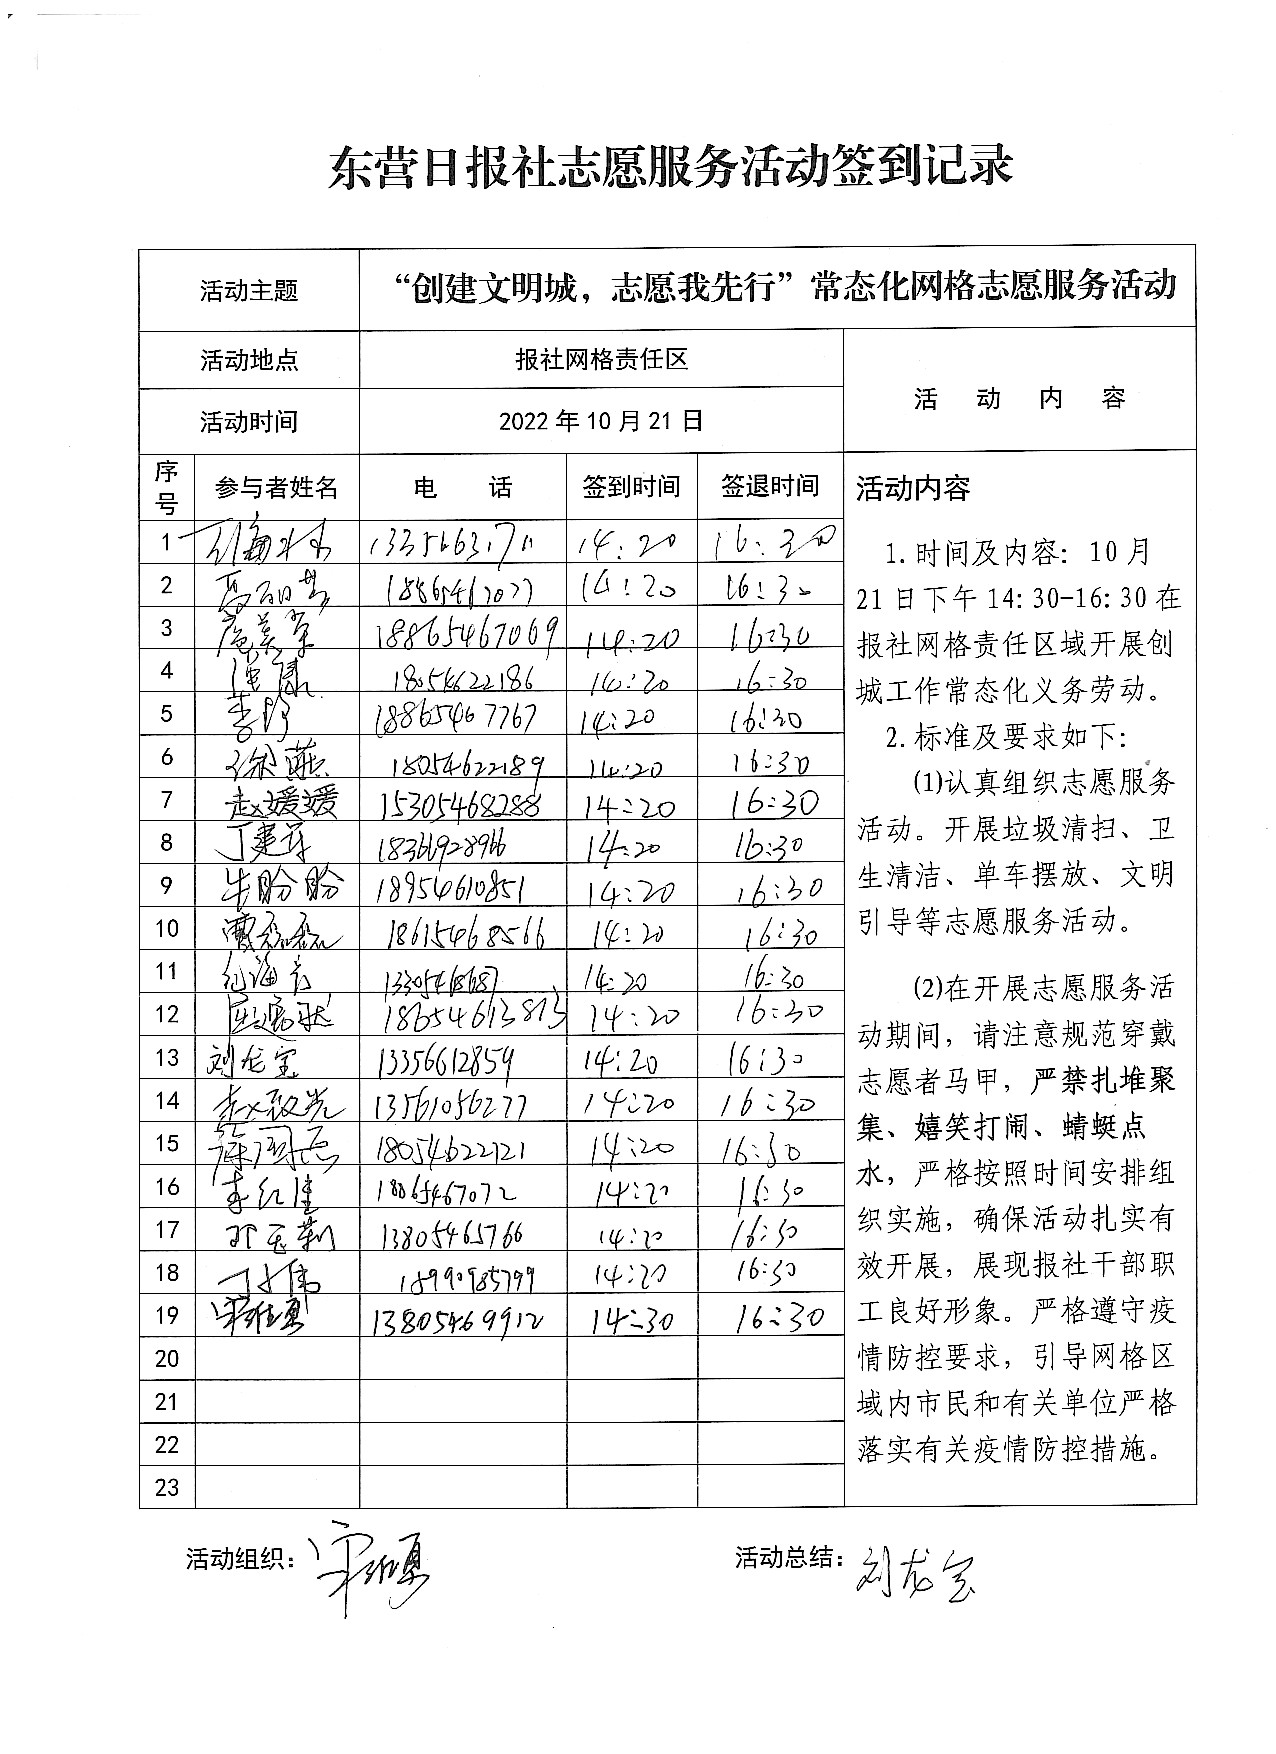 东营日报社志愿服务活动签到记录
活动主题 “创建文明城，志愿我先行”常态化网格志愿服务活动
活动地点 报社网格责任区
活动时间 2022年10月21日
活动内容
序号 参与者姓名 电话 签到时间 签退时间
1 14:20 16:30
2 14:20 16:30
3 18865467069 14:20 16:30
4 18054622186 14:20 16:30
5 18865467767 14:20 16:30
6 徐燕 18054622189 14:20 16:30
7 赵媛媛 15305468288 14:20 16:30
8 14:20 16:30
9 牛盼盼 18954610851 14:20 16:30
10 曹磊磊 18615468566 14:20 16:30
11 14:20 16:30
12 18654613813 14:20 16:30
13 刘龙宝 13356612859 14:20 16:30
14 13561056277 14:20 16:30
15 18054622121 14:20 16:30
16 李红佳 14:20 16:30
17 13805465766 14:20 16:30
18 14:20 16:30
19 13805469912 14:30 16:30
20
21
22
23
活动内容
1.时间及内容：10月
21日下午14:30-16:30在
报社网格责任区域开展创
城工作常态化义务劳动。
2.标准及要求如下：
⑴认真组织志愿服务
活动。开展垃圾清扫、卫
生清洁、单车摆放、文明
引导等志愿服务活动。
⑵在开展志愿服务活
动期间，请注意规范穿戴
志愿者马甲，严禁扎堆聚
集、嬉笑打闹、蜻蜓点
水，严格按照时间安排组
织实施，确保活动扎实有
效开展，展现报社干部职
工良好形象。严格遵守疫
情防控要求，引导网格区
域内市民和有关单位严格
落实有关疫情防控措施。
活动组织：
活动总结：刘龙宝